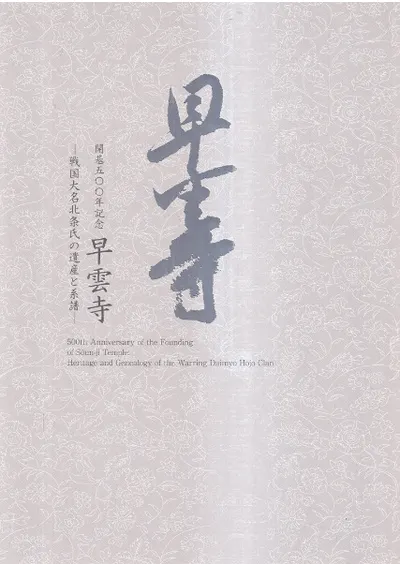 早雲寺
開基五〇〇年記念 早雲寺
―戦国大名北条氏の遺産と系譜―
500th Anniversary of the Founding
of Sōun-ji Temple:
Heritage and Genealogy of the Warring Daimyo Hojo Clan